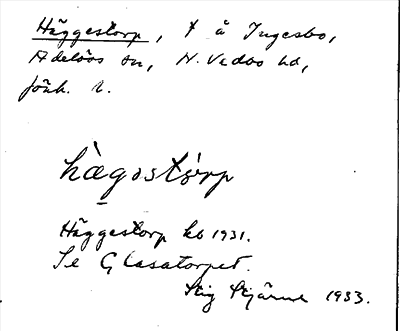 Häggestorp, t å Ingesbo,
Adelövs sn, N. Vedbo hd,
Jönk. l.
hægostórp
Häggestorp kb 1931.
Se Glasatorpet.
Stig Stjärne 1933.